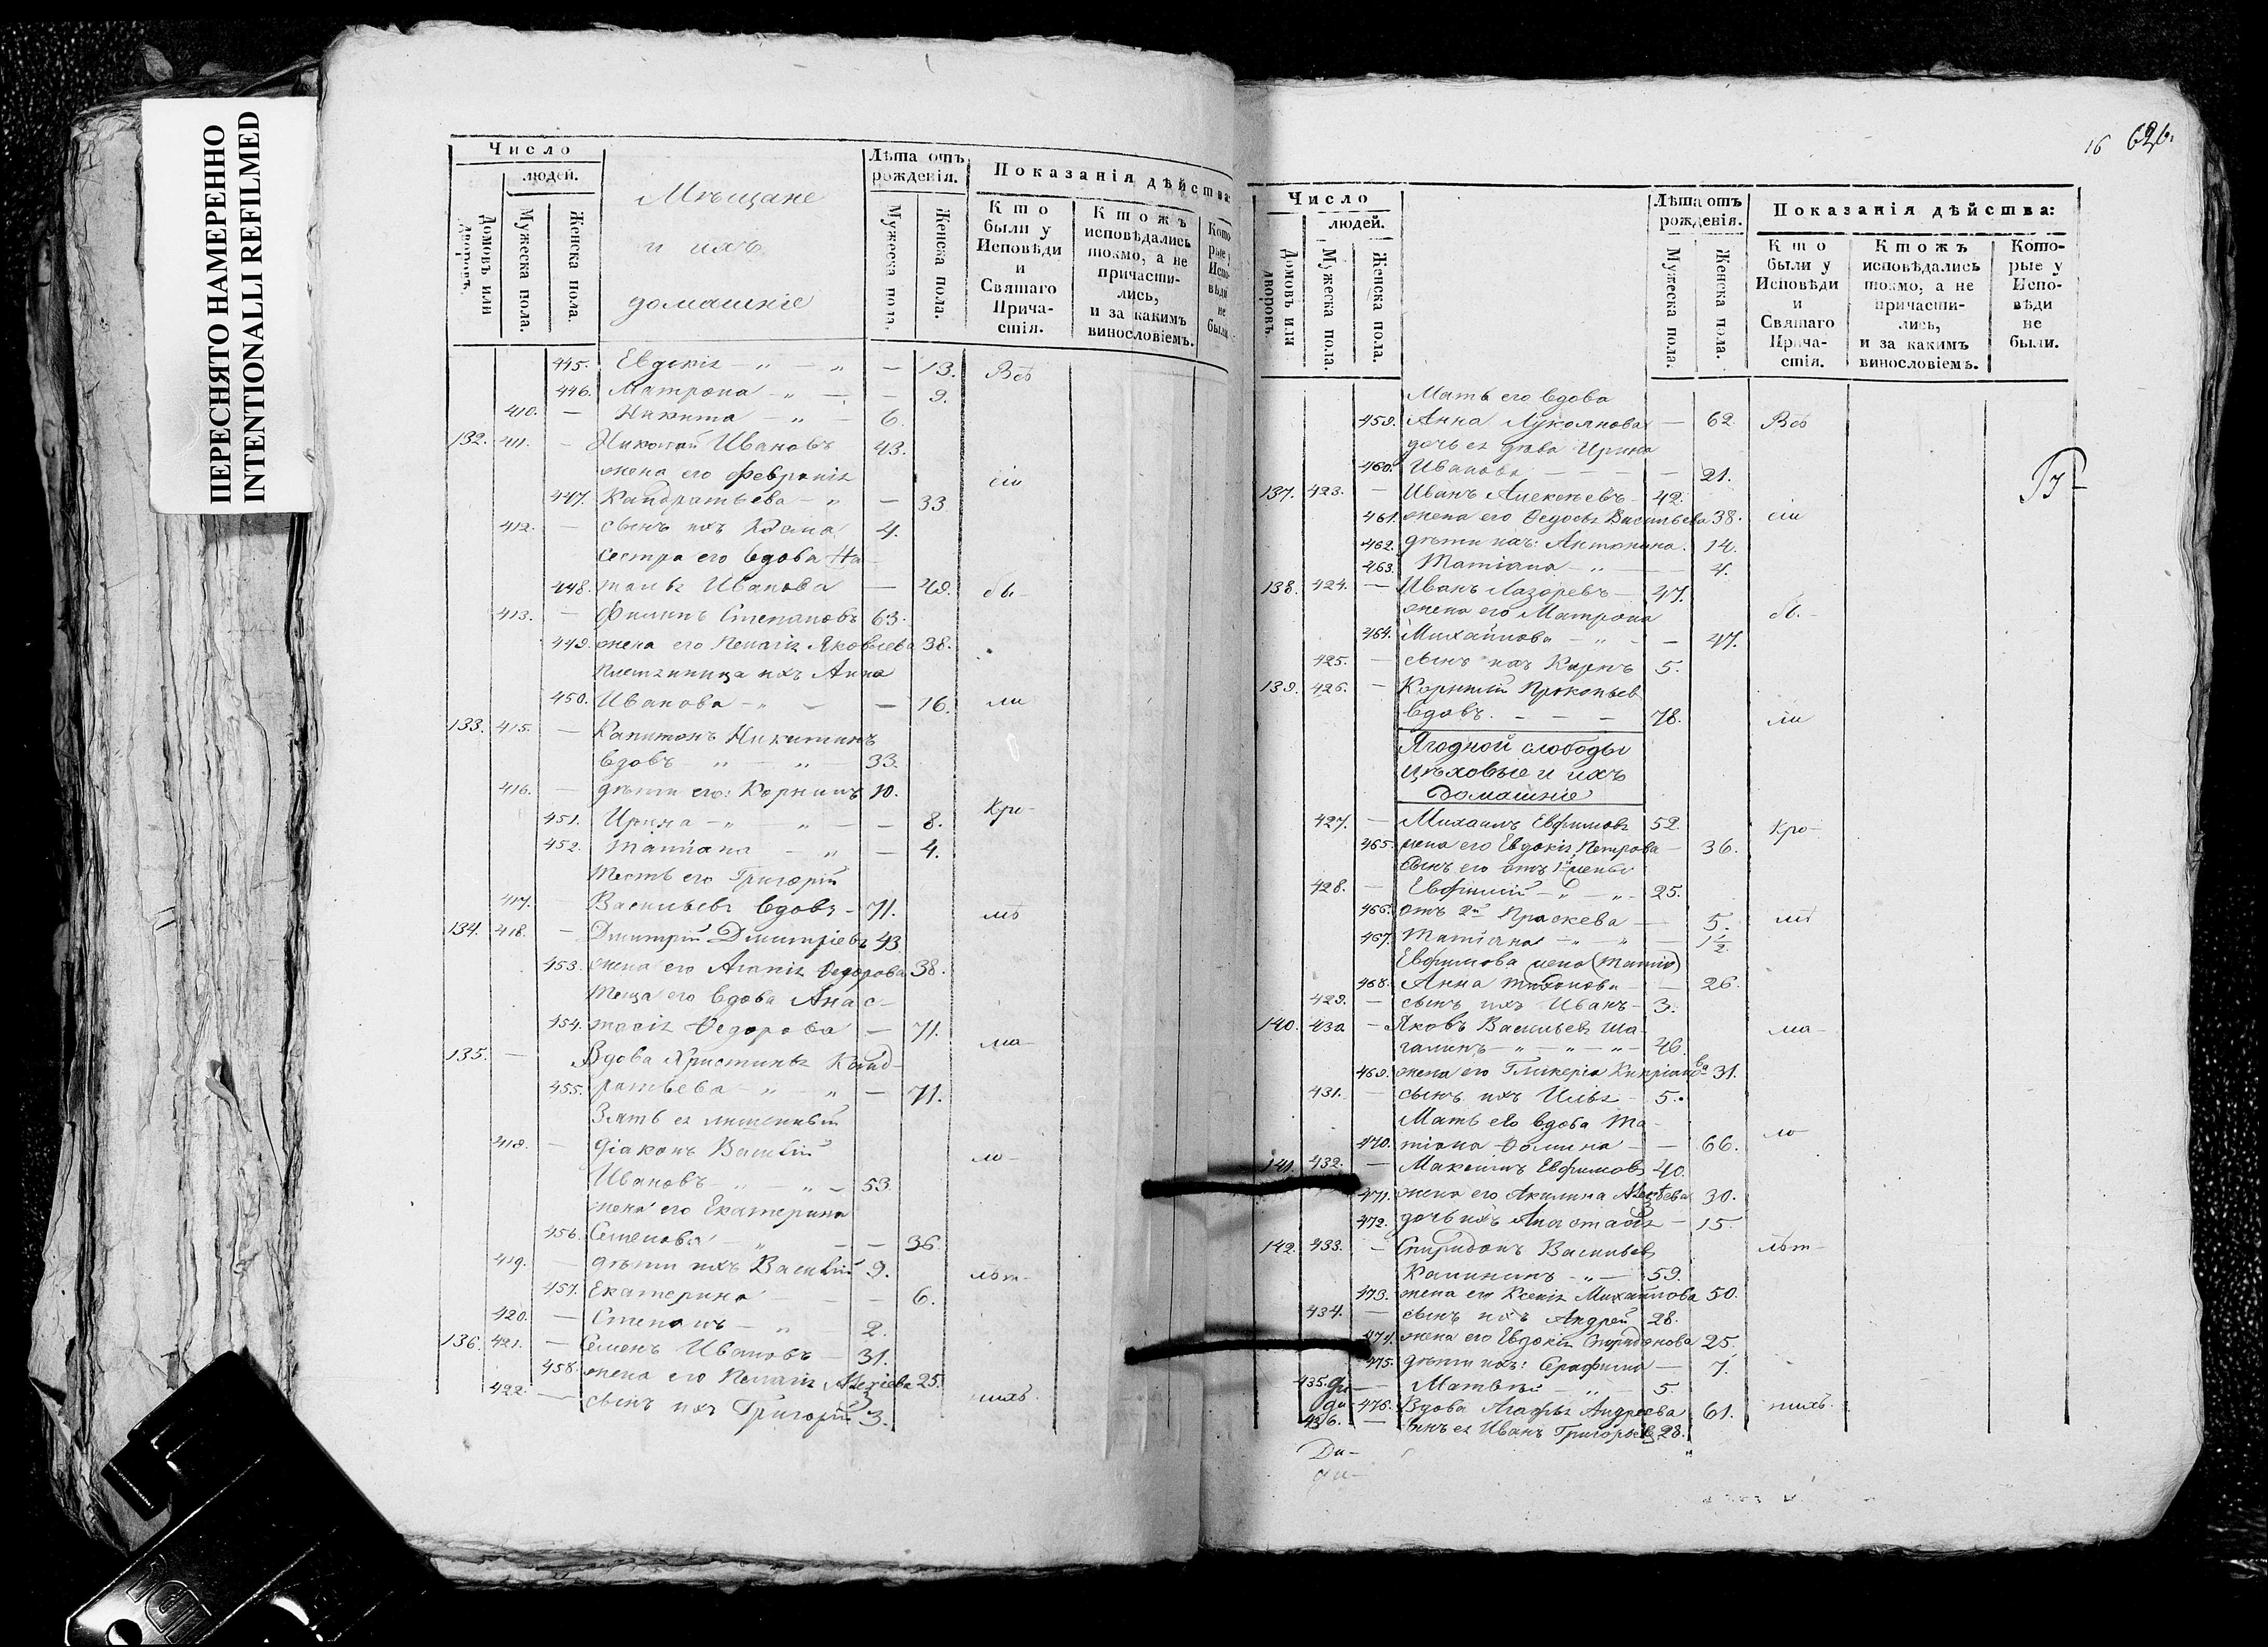 ПЕРЕСНЯТО НАМЕРЕННО
INTENTIONALLI REFILMED
Число
людей.
Домовъ или дворовъ.
Мужеска пола.
Женска пола.
Мѣщане
и ихъ
домашніе
Лѣта отъ рожденія.
Мужеска пола.
Женска пола.
Показанія дѣйства:
Кто были у Исповѣди и Святаго Прича-стія.
Ктожъ исповѣдались токмо, а не причасти-лись, и за какимъ винословіемъ.
Кото-рые у Испо-вѣди не были.
445. Евдокія — „ — „ — 13. Всѣ
446. Матрона — „ — — 9.
410. — Никита — „ — 6.
132. 411. — Николай Ивановъ 43.
жена его Февронія сіи
447. Кандратьева — „ — 33
412. — сынъ ихъ Косма 4.
сестра его вдова На-
448. талья Иванова — 49. бы-
413. — Филипъ Степановъ 63.
449. жена его Пелагія Яковлева 38.
племянница ихъ Анна
450. Иванова — „ — — 16. ли
133. 415. — Капитонъ Никитинъ
вдовъ — „ — „ — 33.
416. — дѣти его: Корнилъ 10.
451. Ирина — „ — „ — — 8. Кро-
452. Татіана — „ — — 4.
Тесть его Григорій
417. Васильевъ вдовъ — 71. мѣ
134. 418. — Дмитрій Дмитріевъ 43
453. жена его Агапія Ѳедорова 38.
Теща его вдова Анас-
454. тасія Ѳедорова — 71.
135. — Вдова Христинья Конд- ма-
455. ратьева — „ „ — 71.
Зять ея лишенный
418. — діаконъ Василій ло-
Ивановъ — „ — „ — 53.
жена его Екатерина
456. Семенова — „ — — 36.
419. — дѣти ихъ Василій 9. лѣт-
457. Екатерина — — 6.
420. — Степанъ — „ 2.
136. 421. — Семенъ Ивановъ — 31.
458. жена его Пелагія 25.
422. — сынъ ихъ Григорій 3. нихъ.
16 626.
Число
людей.
Домовъ или дворовъ.
Мужеска пола.
Женска пола.
Лѣта отъ рожденія.
Мужеска пола.
Женска пола.
Показанія дѣйства:
Кто были у Исповѣди и Святаго Прича-стія.
Ктожъ исповѣдались токмо, а не причасти-лись, и за какимъ винословіемъ.
Кото-рые у Испо-вѣди не были.
Мать его вдова
459. Анна Лукоянова — 62. Всѣ
дочь ея дѣва Ирина
460. Иванова — — — — 21.
137. 423. — Иванъ Алексѣевъ — 42.
461. жена его Ѳедосья Васильева 38. сіи
462. дѣти ихъ: Антонина. 14.
463. Татіана — „ — — 4.
138. 424. — Иванъ Лазаревъ — 47.
жена его Матрона бы-
464. Михайлова — „ — — 47.
425. — сынъ ихъ Карпъ 5.
139. 426. — Корнилій Прокопьев
вдовъ. — — — 78. ли
Ягодной слободы
Цѣховые и ихъ
домашніе
427. — Михаилъ Евфимовъ 52. Кро-
465. жена его Евдокія Петрова — 36.
сынъ его отъ 1й жены
428. — Евфимій — „ — „ 25.
466. отъ 2й Праскева — 5. мѣ
467. Татіана — „ — „ — 1½
Евфимова жена
468. Анна Тихонова — — 26.
429. — сынъ ихъ Иванъ — 3.
140. 430. — Яковъ Васильев Ша- ма-
галинъ — „ — „ — „ — 46.
469. жена его Гликерія Кипріанова 31.
431. — сынъ ихъ Илья — 5.
Мать его вдова Та-
470. тіана Ѳомина — — 66. ло
141. 432. — Максимъ Евфимовъ 40.
471. жена его Акилина 30.
472. дочь ихъ Анастасія — 15.
142. 433. — Спиридонъ Васильев лѣт-
Калининъ — „ — 59.
473. жена его Ксенія Михайлова 50.
434. — сынъ ихъ Андрей 28.
474. жена его Евдокія Спиридонова 25.
475. дѣти ихъ: Серафима — 7.
435. — Матвѣй — „ — 5.
476. Вдова Агафья Андреева 61. нихъ.
436. — сынъ ея Иванъ Григорьев 28.